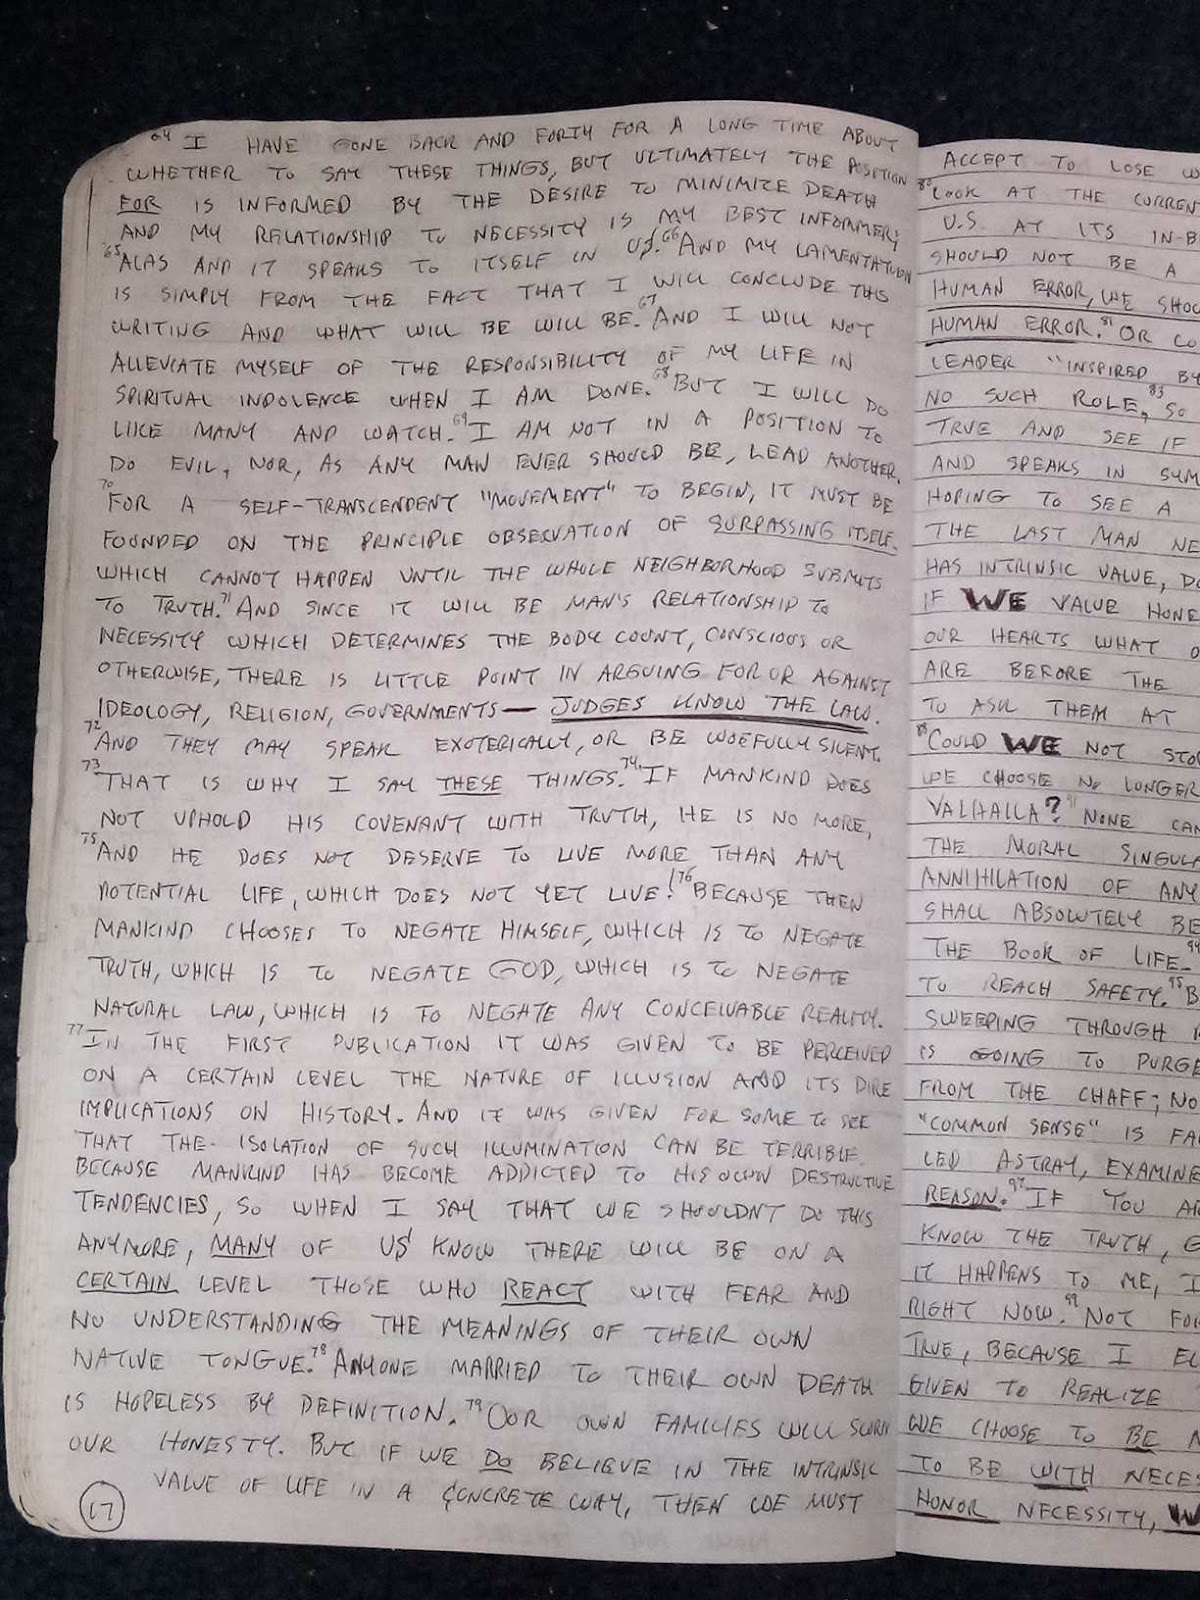 64 I HAVE GONE BACK AND FORTH FOR A LONG TIME ABOUT
WHETHER TO SAY THESE THINGS, BUT ULTIMATELY THE POSITION
FOR IS INFORMED BY THE DESIRE TO MINIMIZE DEATH
AND MY RELATIONSHIP TO NECESSITY IS MY BEST INFORMER;
65 ALAS AND IT SPEAKS TO ITSELF IN US. 66 AND MY LAMENTATION
IS SIMPLY FROM THE FACT THAT I WILL CONCLUDE THIS
WRITING AND WHAT WILL BE WILL BE. 67 AND I WILL NOT
ALLEVIATE MYSELF OF THE RESPONSIBILITY OF MY LIFE IN
SPIRITUAL INDOLENCE WHEN I AM DONE. 68 BUT I WILL DO
LIKE MANY AND WATCH. 69 I AM NOT IN A POSITION TO
DO EVIL, NOR, AS ANY MAN EVER SHOULD BE, LEAD ANOTHER.
70 FOR A SELF-TRANSCENDENT "MOVEMENT" TO BEGIN, IT MUST BE
FOUNDED ON THE PRINCIPLE OBSERVATION OF SURPASSING ITSELF.
WHICH CANNOT HAPPEN UNTIL THE WHOLE NEIGHBORHOOD SUBMITS
TO TRUTH. 71 AND SINCE IT WILL BE MAN'S RELATIONSHIP TO
NECESSITY WHICH DETERMINES THE BODY COUNT, CONSCIOUS OR
OTHERWISE, THERE IS LITTLE POINT IN ARGUING FOR OR AGAINST
IDEOLOGY, RELIGION, GOVERNMENTS— JUDGES KNOW THE LAW.
72 AND THEY MAY SPEAK EXOTERICALLY, OR BE WOEFULLY SILENT.
73 THAT IS WHY I SAY THESE THINGS. 74 IF MANKIND DOES
NOT UPHOLD HIS COVENANT WITH TRUTH, HE IS NO MORE,
75 AND HE DOES NOT DESERVE TO LIVE MORE THAN ANY
POTENTIAL LIFE, WHICH DOES NOT YET LIVE! 76 BECAUSE THEN
MANKIND CHOOSES TO NEGATE HIMSELF, WHICH IS TO NEGATE
TRUTH, WHICH IS TO NEGATE GOD, WHICH IS TO NEGATE
NATURAL LAW, WHICH IS TO NEGATE ANY CONCEIVABLE REALITY.
77 IN THE FIRST PUBLICATION IT WAS GIVEN TO BE PERCEIVED
ON A CERTAIN LEVEL THE NATURE OF ILLUSION AND ITS DIRE
IMPLICATIONS ON HISTORY. AND IT WAS GIVEN FOR SOME TO SEE
THAT THE ISOLATION OF SUCH ILLUMINATION CAN BE TERRIBLE.
BECAUSE MANKIND HAS BECOME ADDICTED TO HIS OWN DESTRUCTIVE
TENDENCIES, SO WHEN I SAY THAT WE SHOULDN'T DO THIS
ANYMORE, MANY OF US KNOW THERE WILL BE ON A
CERTAIN LEVEL THOSE WHO REACT WITH FEAR AND
NO UNDERSTANDING THE MEANINGS OF THEIR OWN
NATIVE TONGUE. 78 ANYONE MARRIED TO THEIR OWN DEATH
IS HOPELESS BY DEFINITION. 79 OUR OWN FAMILIES WILL SCORN
OUR HONESTY. BUT IF WE DO BELIEVE IN THE INTRINSIC
VALUE OF LIFE IN A CONCRETE WAY, THEN WE MUST
17
ACCEPT TO LOSE
80 LOOK AT THE
U.S. AT ITS
SHOULD NOT BE A
HUMAN ERROR, WE
HUMAN ERROR. 81 OR
LEADER "INSPIRED
NO SUCH ROLE, 83 SO
TRUE AND SEE IF
AND SPEAKS IN
HOPING TO SEE A
THE LAST MAN
HAS INTRINSIC VALUE,
IF WE VALUE
OUR HEARTS WHAT
ARE BEFORE THE
TO ASK THEM AT
COULD WE NOT
WE CHOOSE NO LONGER
VALHALLA? 91 NONE
THE MORAL
ANNIHILATION OF
SHALL ABSOLUTELY BE
THE BOOK OF LIFE. 94
TO REACH SAFETY. 95
SWEEPING THROUGH
IS GOING TO PURGE
FROM THE CHAFF; NO
"COMMON SENSE" IS
LED ASTRAY, EXAMINE
REASON. 97 IF YOU
KNOW THE TRUTH,
IT HAPPENS TO ME, I
RIGHT NOW. 99 NOT
TRUE, BECAUSE I
GIVEN TO REALIZE
WE CHOOSE TO BE
TO BE WITH
HONOR NECESSITY,